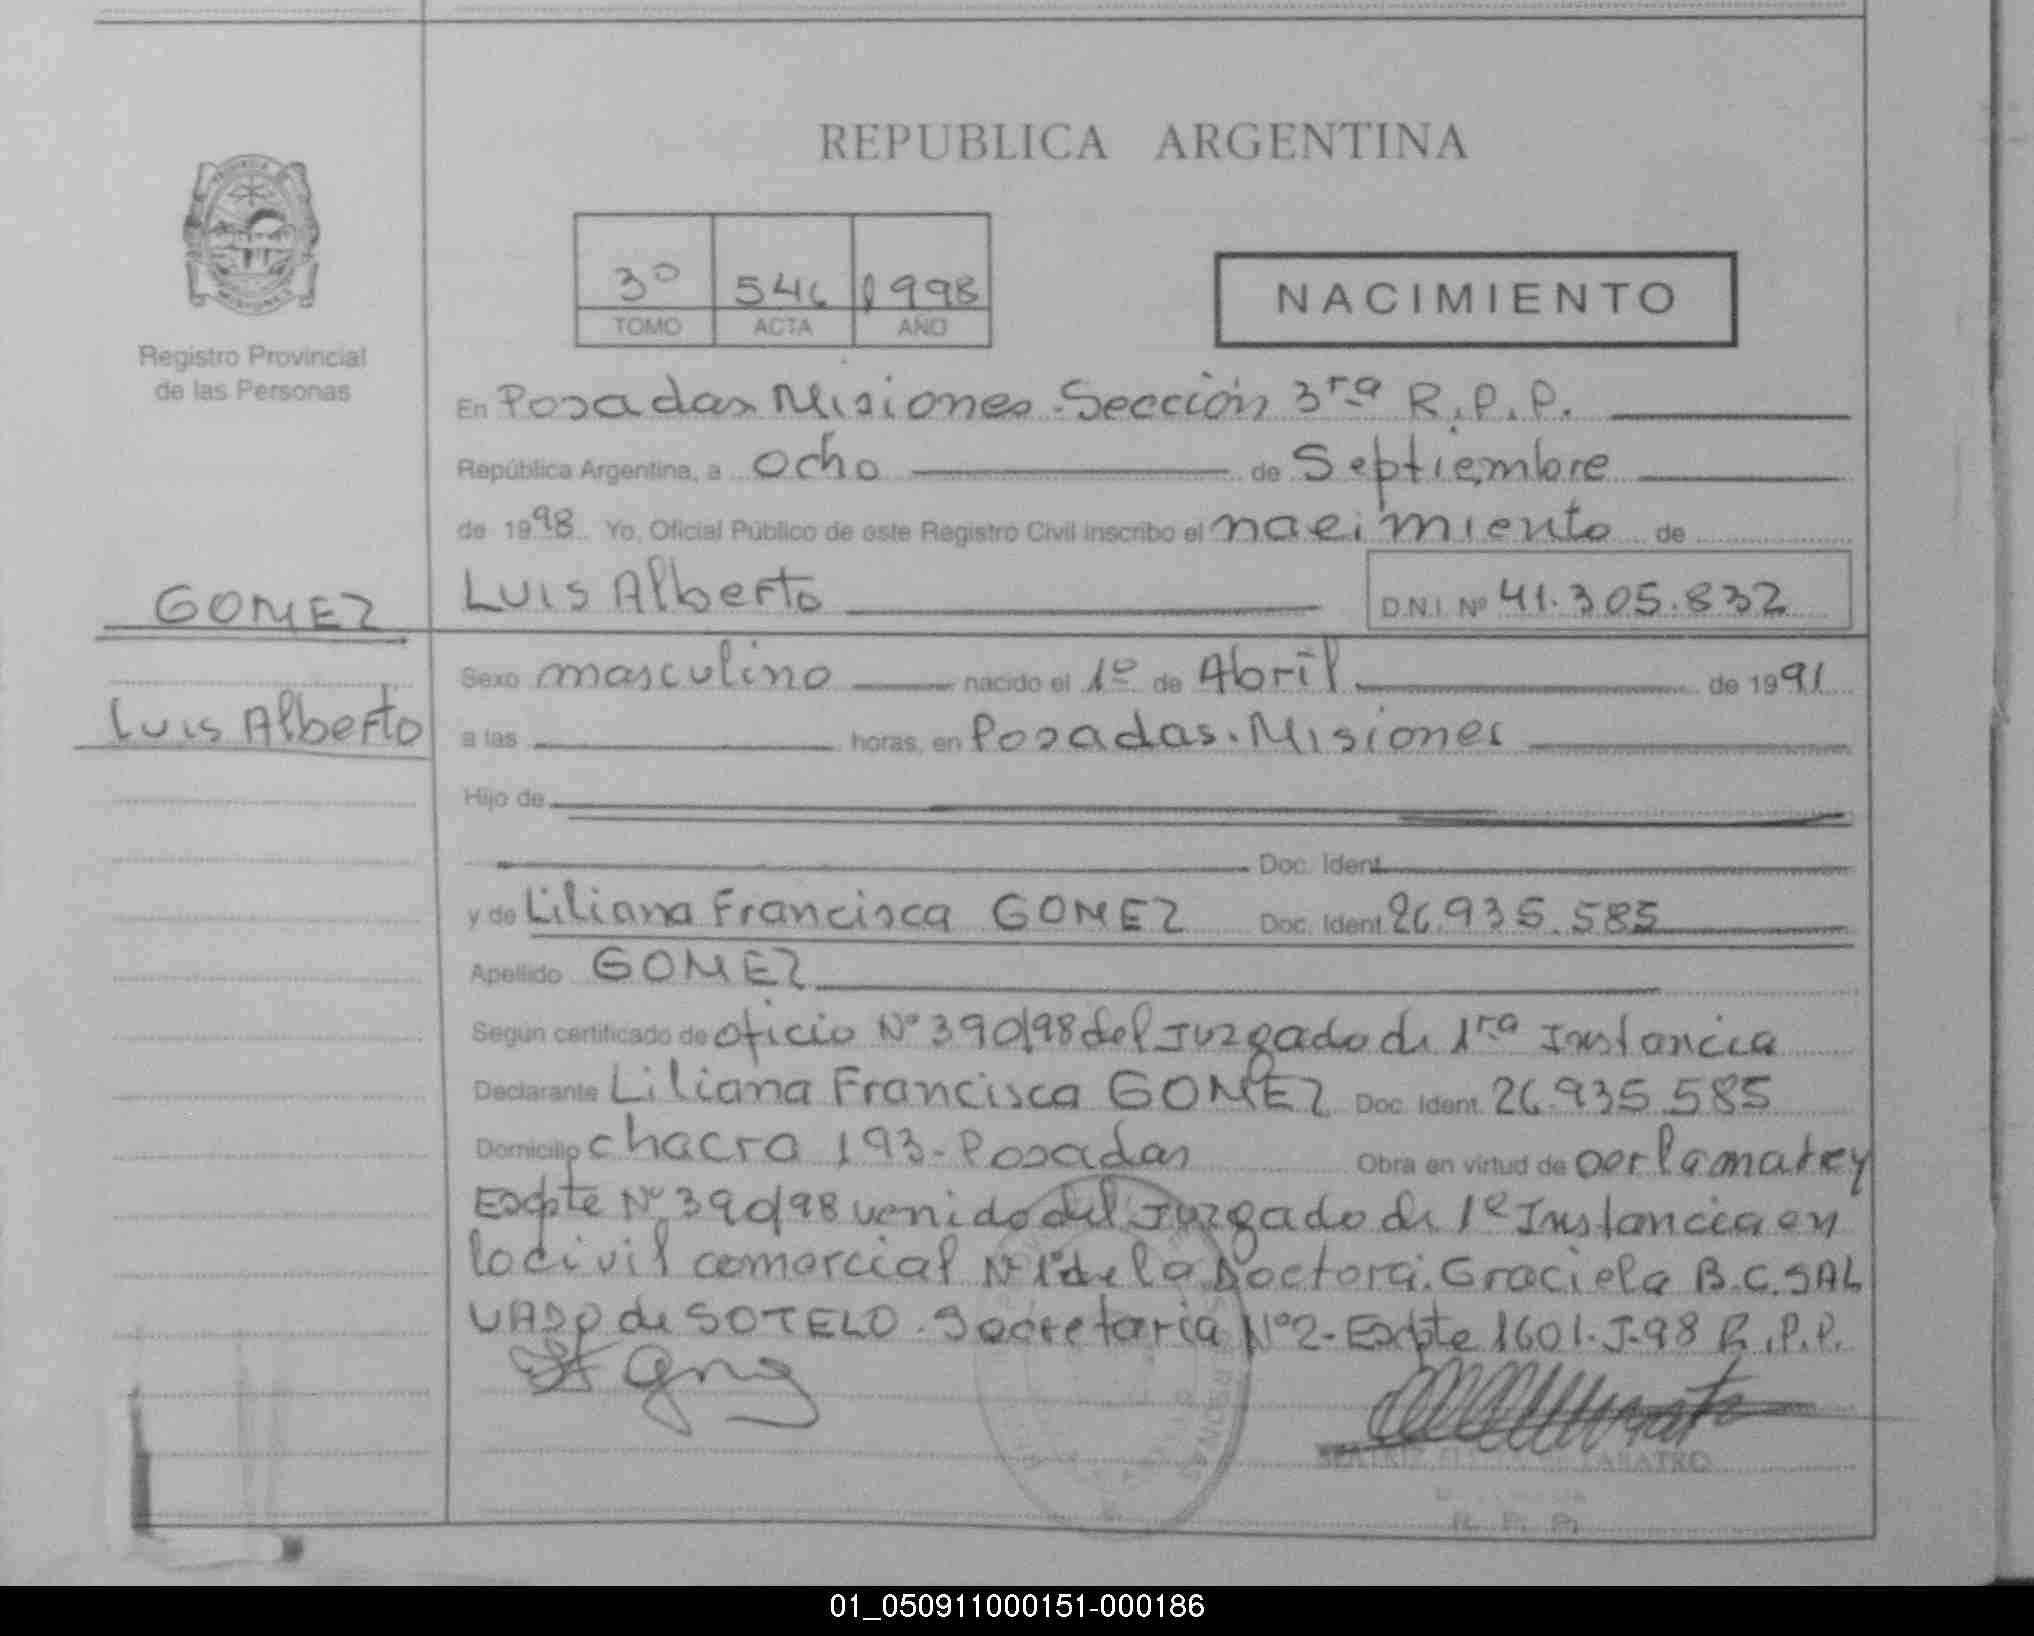 REPUBLICA ARGENTINA
3º 546 1998
TOMO ACTA AÑO
NACIMIENTO
Registro Provincial
de las Personas
En Posadas Misiones. Sección 3ra R.P.P.
República Argentina, a ocho de Septiembre
de 1998. Yo, Oficial Público de este Registro Civil inscribo el nacimiento de
GOMEZ
Luis Alberto
Luis Alberto D.N.I. Nº 41.305.832
Sexo masculino nacido el 1º de Abril de 1991
a las horas, en Posadas. Misiones
Hijo de
Doc. Ident.
y de Liliana Francisca GOMEZ Doc. Ident. 26.935.585
Apellido GOMEZ
Según certificado de oficio Nº 390/98 del Juzgado de 1ra Instancia
Declarante Liliana Francisca GOMEZ Doc. Ident. 26.935.585
Domicilio chacra 193-Posadas Obra en virtud de
Expte Nº 390/98 venido del Juzgado de 1º Instancia en
lo civil comercial Nº 1 de la Doctora. Graciela B.C. SAL
VADO de SOTELO. Secretaria Nº2-Expte 1601-J-98 R.P.P.
R. P. P.
01_050911000151-000186